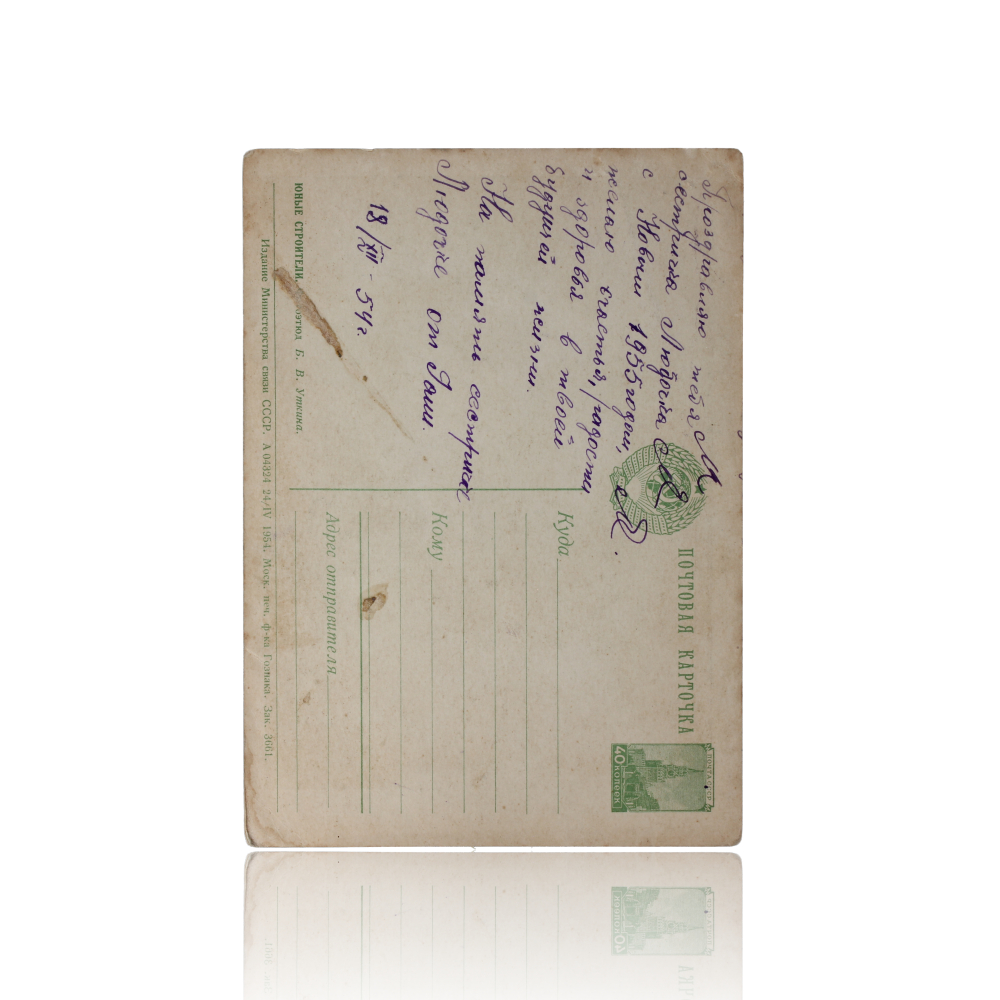 Проздравляю тебя
сестричка Людочка
с Новым 1955 годом,
желаю счастья, радости
и здоровья в твоей
будущей жизни.
На память сестричке
Людочке от Гали.
18/XII - 54 г.
ЮНЫЕ СТРОИТЕЛИ. Б. В. Уткина.
Издание Министерства связи СССР. А 04324 24/IV 1954. Моск. печ. ф-ка Гознака. Зак. 3661.
ПОЧТОВАЯ КАРТОЧКА
ПОЧТА СССР
40 КОПЕЕК
Куда
Кому
Адрес отправителя